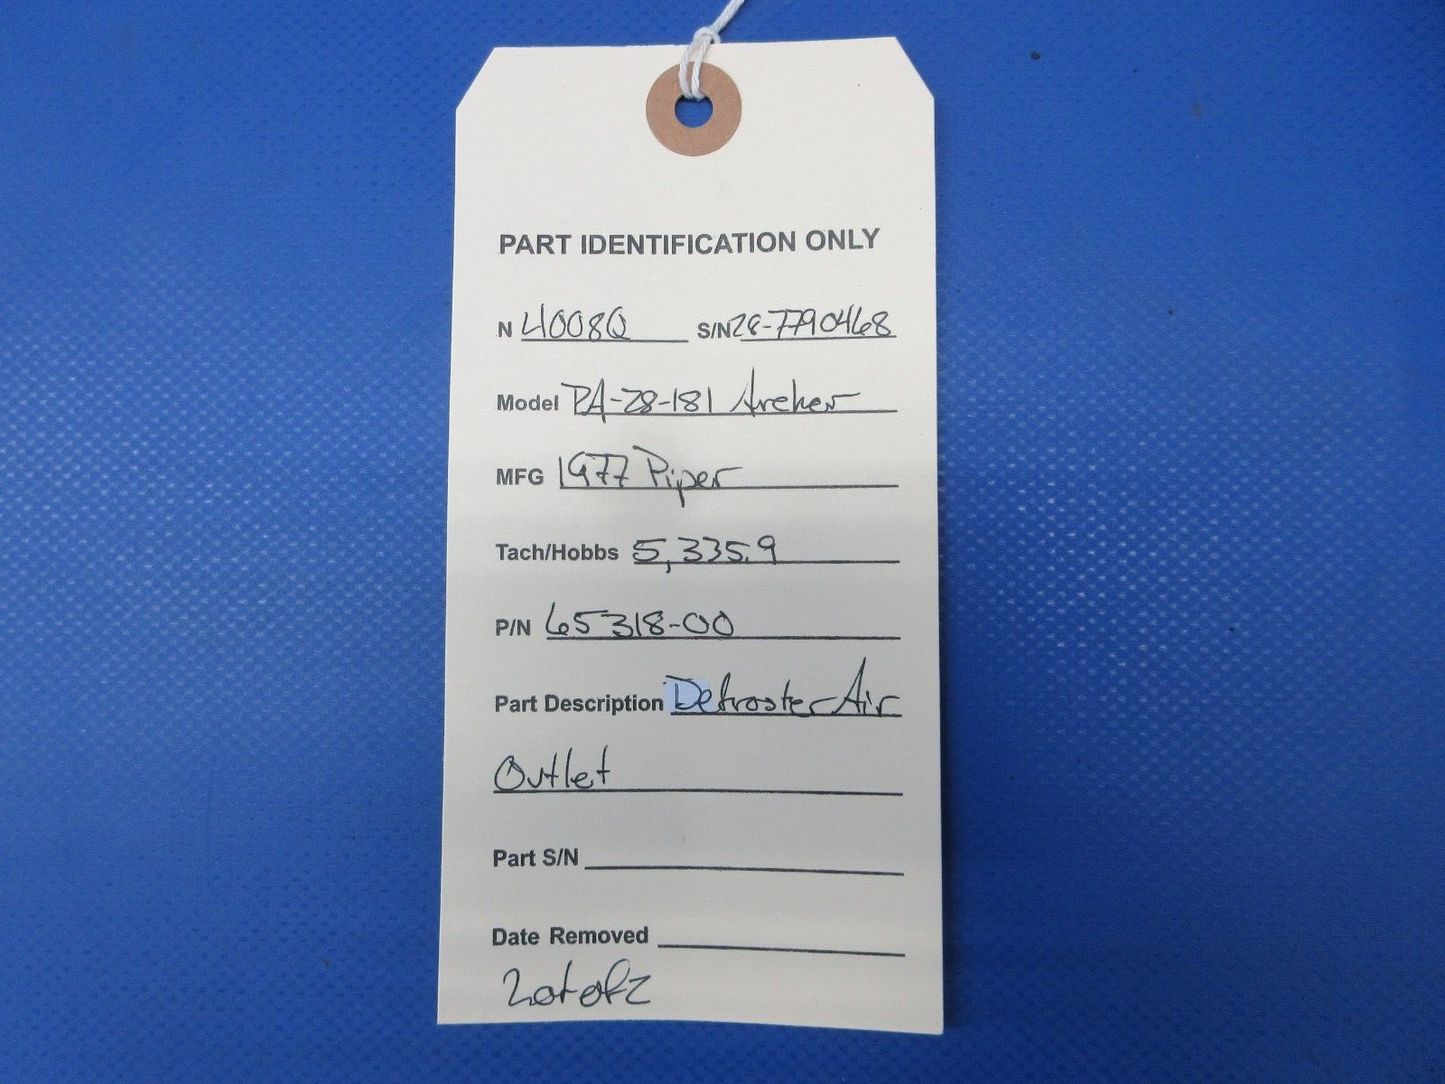 PART IDENTIFICATION ONLY
N 4008Q S/N 28-7790468
Model PA-28-181 Archer
MFG 1977 Piper
Tach/Hobbs 5,335.9
P/N 65318-00
Part Description Defroster Air
Outlet
Part S/N
Date Removed
2 of 2